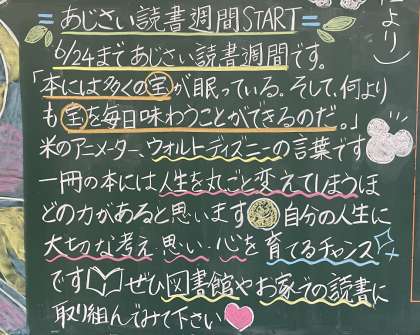 あじさい読書週間START
6/24まであじさい読書週間です。
「本には多くの宝が眠っている。そして、何より
も宝を毎日味わうことができるのだ。」
米のアニメーター、ウォルトディズニーの言葉です
一冊の本には人生を丸ごと変えてしまうほ
どの力があると思います 自分の人生に
大切な考え・思い・心を育てるチャンス
です ぜひ図書館やお家での読書に
取り組んでみて下さい
より）